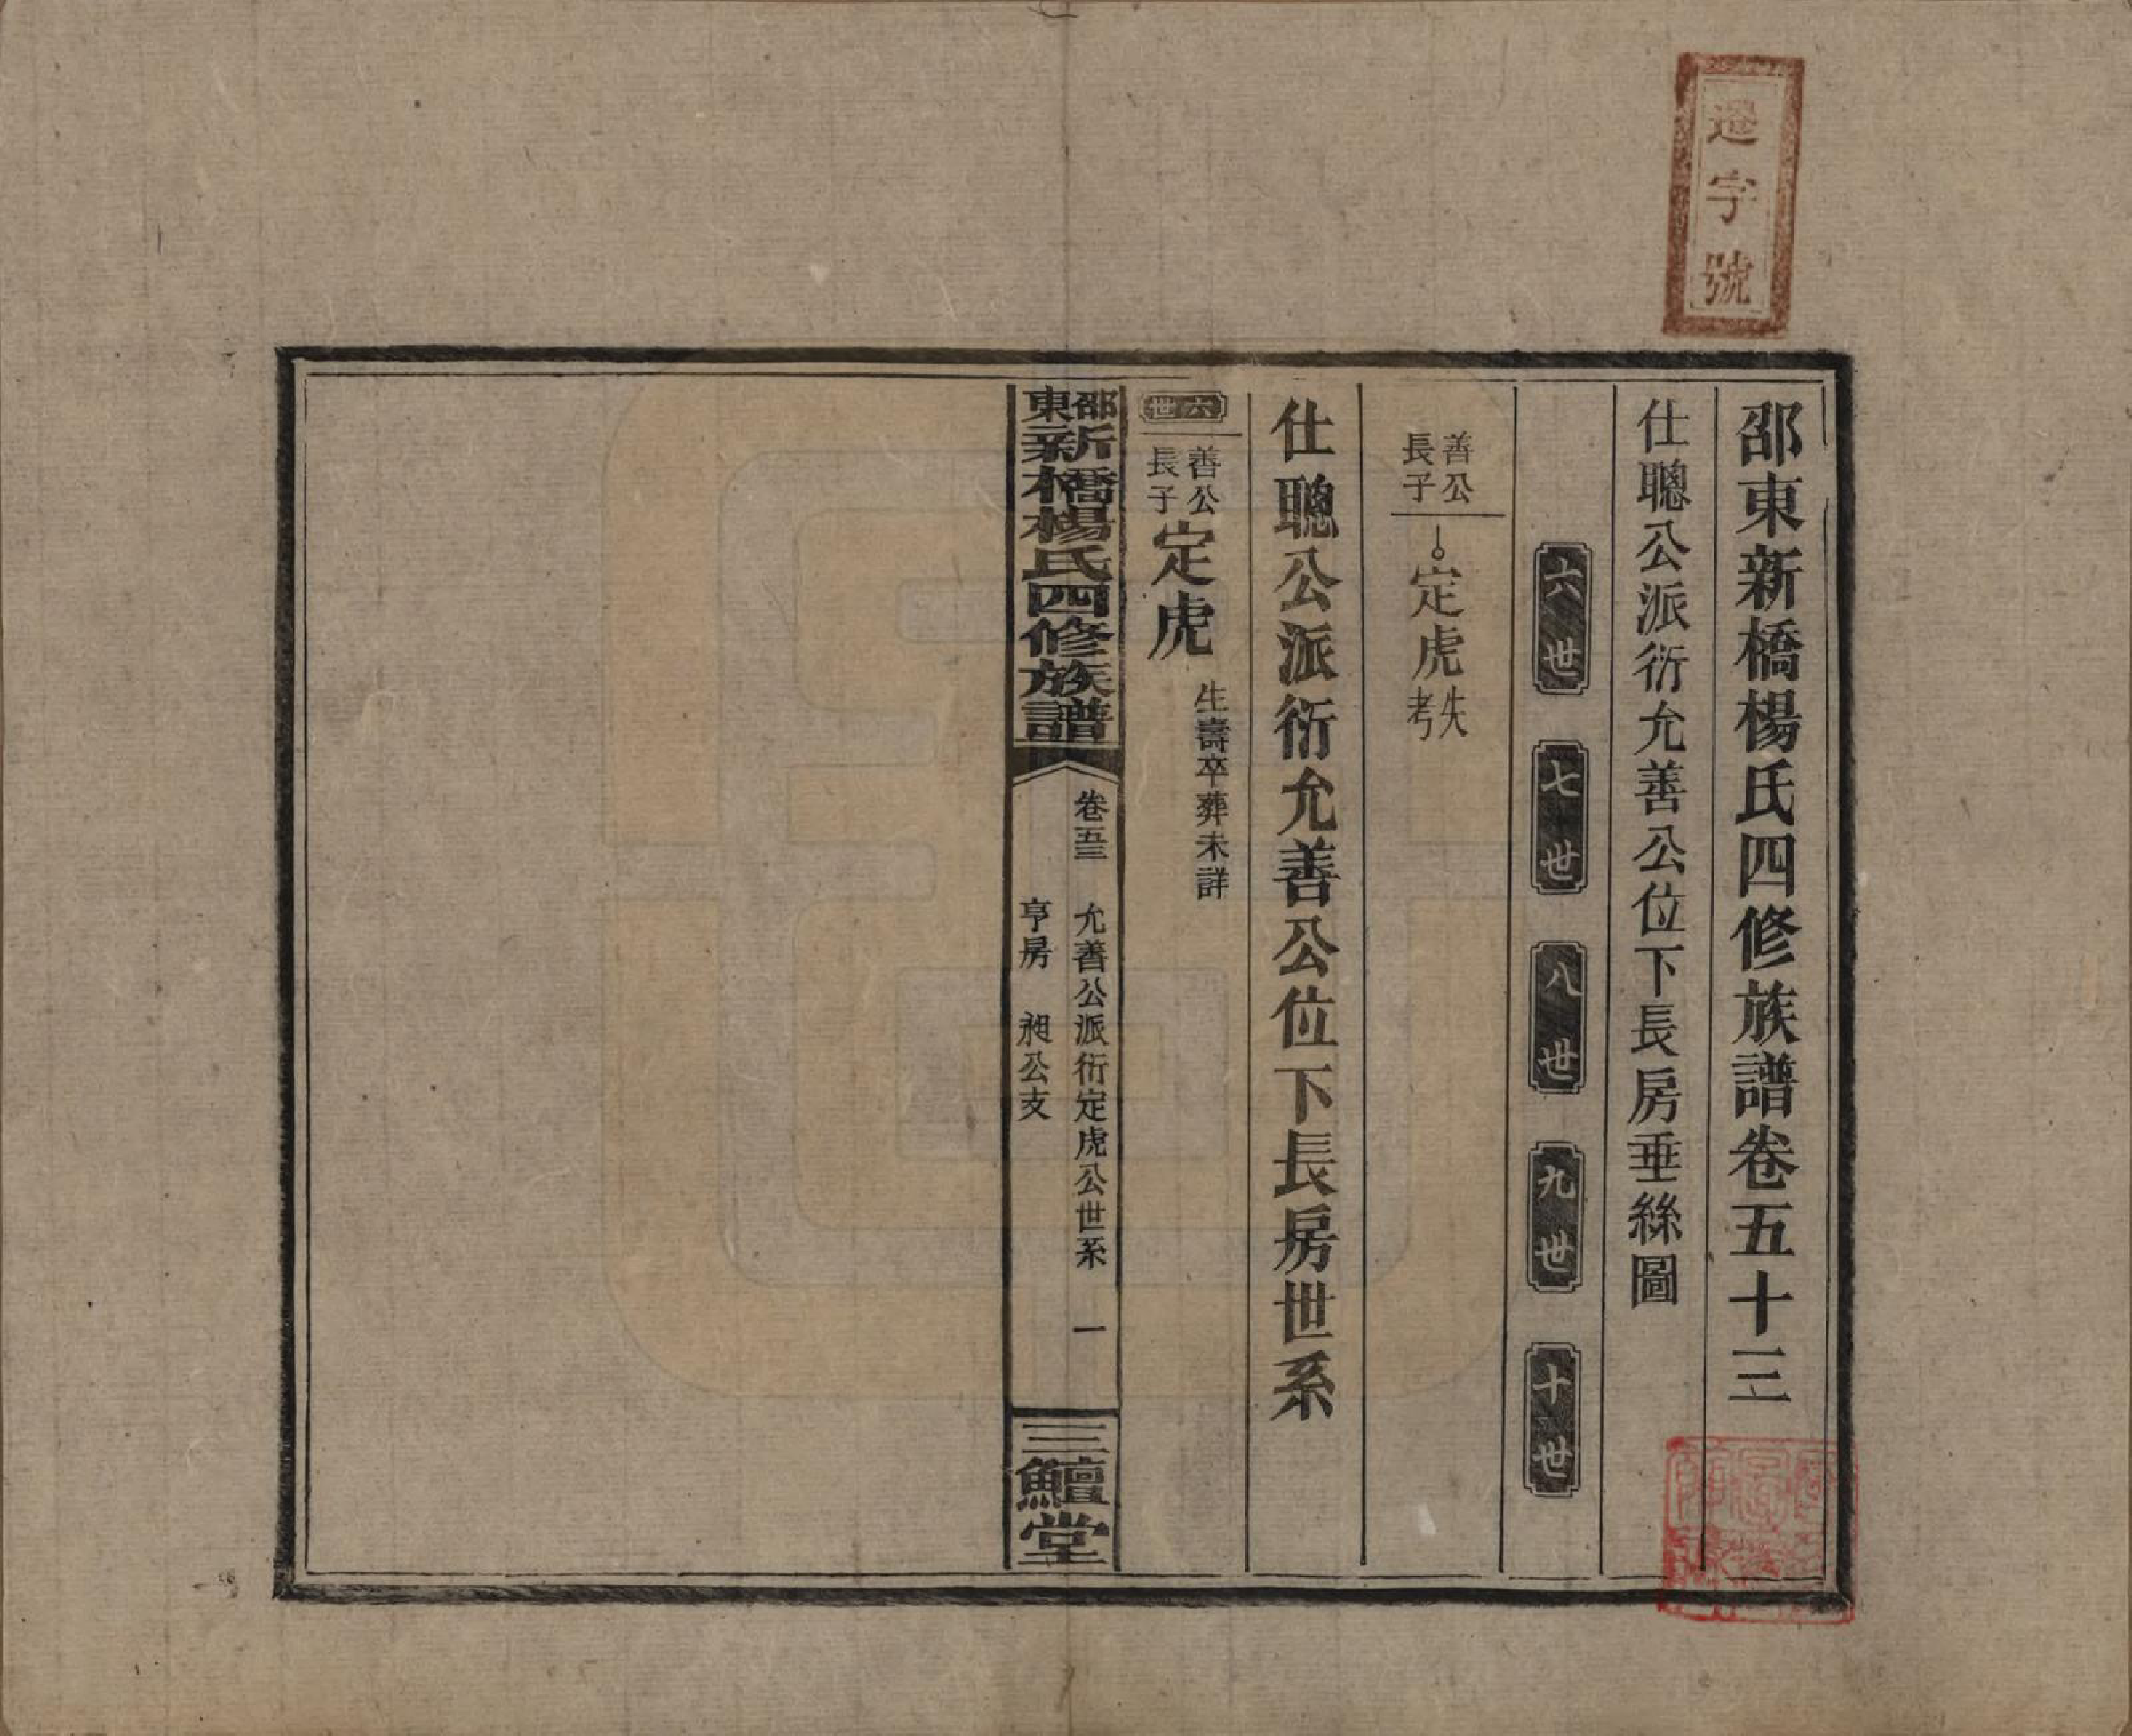 邵東新橋楊氏四修族譜卷五十三
仕聰公派衍允善公位下長房垂絲圖
六世 七世 八世 九世 十世
善公長子 定虎 失考
仕聰公派衍允善公位下長房世系
六世
善公長子 定虎 生壽卒葬未詳
邵東新橋楊氏四修族譜
卷五三 允善公派衍定虎公世系 一
亨房 昶公支
三鱣堂
字號